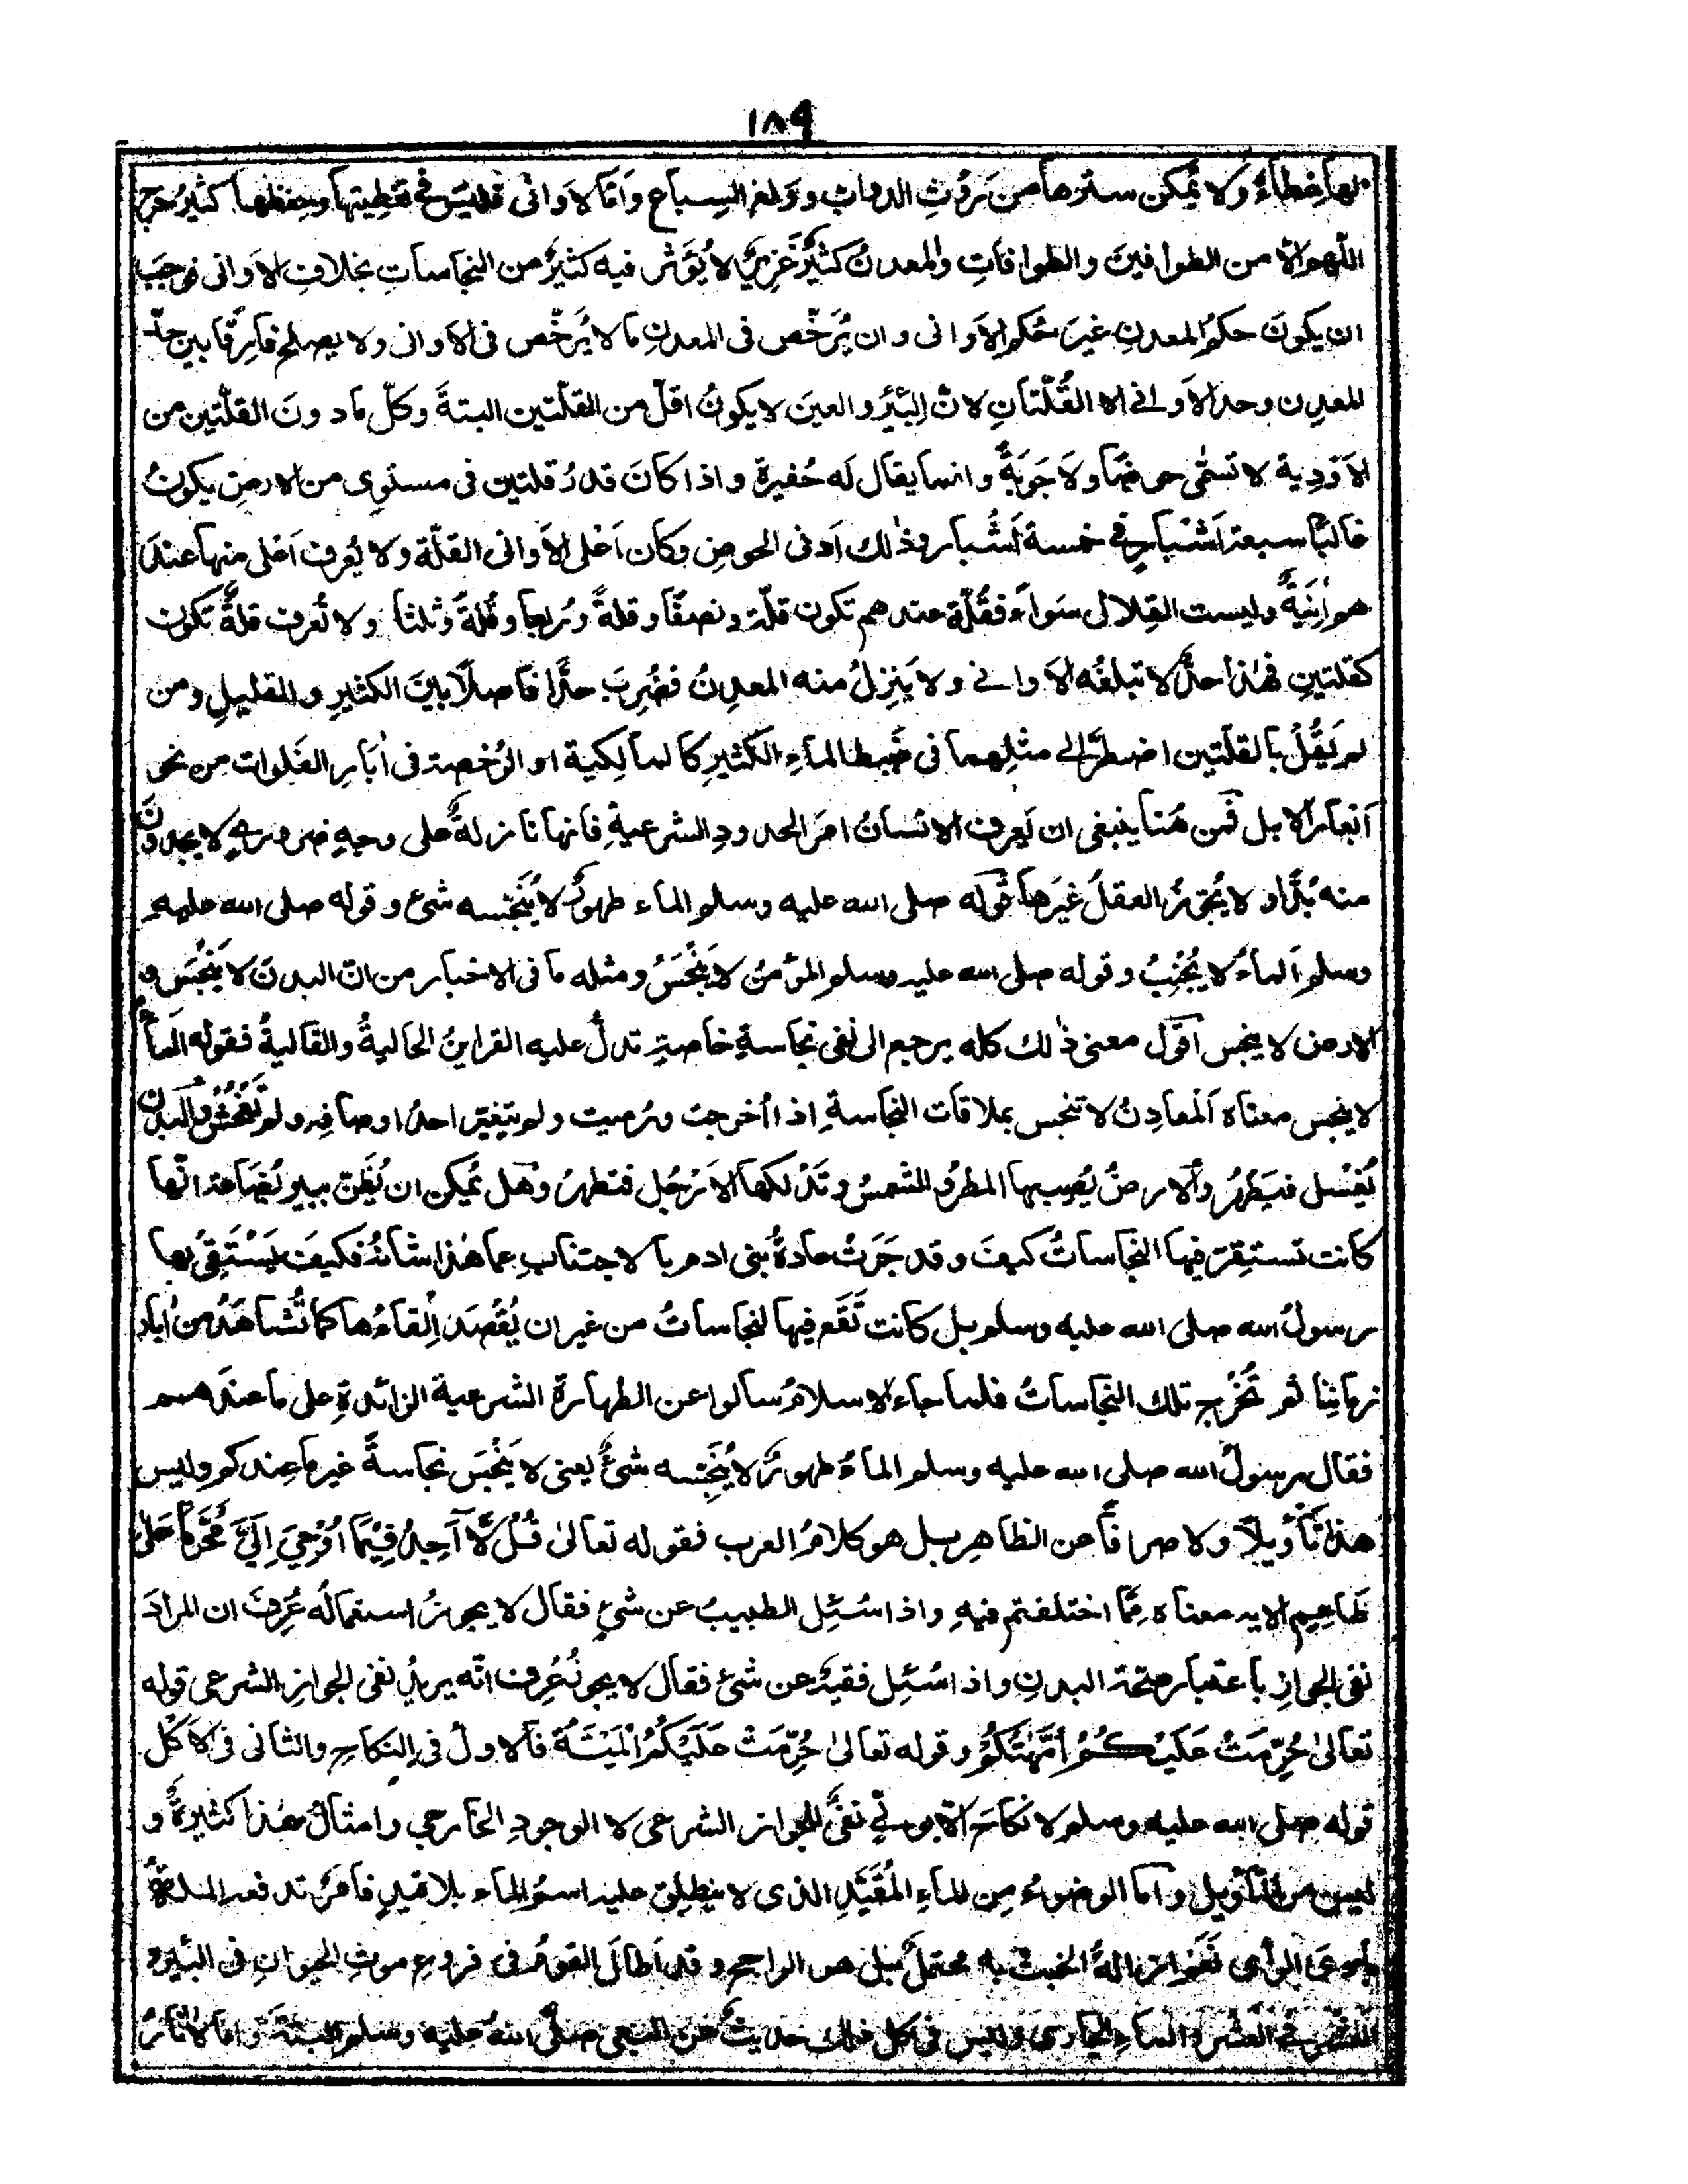 ١٨٩
لها غطاءٌ ولا يُمكن سترها من رَوْثِ الدواب ووَلغ السِباع وَاَمّا الاَوانى فليسَ فى تغطِيتها وحِفظها كثيرُ حرج
اللّٰهم الا من الطوافينَ والطوافاتِ والمعدنُ كثيرٌ غَزِيرٌ لا يُؤثر فيه كثيرٌ من النجاساتِ بخلافِ الاوانى فوجَبَ
ان يكونَ حكمُ المعدنِ غيرَ حُكمِ الاَوانى وان يُرَخّص فى المعدنِ ما لا يُرَخّص فى الاوانى ولا يصلح فارِقًا بين حدّ
المعدِن وحد الاَوانى الا القُلّتانِ لان البِئرَ والعينَ لا يكونُ اقلّ من القلّتين البتةَ وكلّ ما دونَ القلّتين من
الاَوْدِية لا تسمّى حوضًا ولا جَوبَةً وانما يقال لَه حُفيرة واذا كانَ قدرُ قلتين فى مستوِى من الارضِ يكونُ
غالبًا سبعة اَشْبارٍ فى خمسة اَشْبار وذٰلك اَدنى الحوضِ وكان اَعلى الاَوانى القلّة ولا يُعرف اَعلى منها عندَ
هم اٰنيةٌ وليست القِلال سَواءً فقُلّة عندهم تكون قلّة ونصفًا وقلةً ورُبعا وقُلةً وثلثا ولا تُعرف قلةٌ تكون
كقلتينِ فهٰذا حدٌّ لا تبلغُه الاَوانى ولا يَنزِلُ منه المعدِنُ فضُرِبَ حدًّا فاصلًا بينَ الكثيرِ والقليلِ ومن
لم يَقُلْ بالقلّتين اضطرَّ الى مثلِهما فى ضَبط الماءِ الكثيرِ كالمالِكية او الرُخصة فى اٰبَارِ الفَلوات من نحوِ
اَبعارِ الابل فمن هُنا ينبغى ان يَعرِف الانسانُ امرَ الحدودِ الشرعيةِ فانها نازلةٌ على وجهٍ ضرورىٍ لا يجدونَ
منه بُدًّا ولا يُجَوّزُ العقلُ غيرَها قوله صلى الله عليه وسلم الماء طهورٌ لا يُنَجّسه شئ وقوله صلى الله عليه
وسلم اَلماءُ لا يُجْنِبُ وقوله صلى الله عليه وسلم المؤمنُ لا يَنْجَسُ ومثله ما فى الاخبار من انّ البدنَ لا يَنْجَس و
الارضَ لا ينجس اَقول معنى ذٰلك كله يرجع الى نفى نجاسةٍ خاصةٍ تدلُّ عليه القراينُ الحاليةُ والقاليةُ فقوله الماءُ
لا ينجس معناه اَلمعادِنُ لا تنجس بملاقات النجاسةِ اذا اُخرجت ورُميت ولم يتغيّر احدُ اوصافِه ولم تفحُش والبدن
يُغسل فيَطهُر والارضُ يُصِيبها المطرُ والشمسُ وتَدْلكها الاَرْجُل فتطهرُ وهل يُمكن ان يُظَنّ ببير بُضاعة انّها
كانت تستقِرّ فيها النجاساتُ كيفَ وقد جَرَتْ عادةُ بنى ادم بالاجتنابِ عما هٰذا شانُه فكيفَ يَسْتَقِى بها
رسولُ الله صلى الله عليه وسلم بل كانت تَقَع فيها النجاساتُ من غيرِ ان يُقْصَد اِلقاءُها كما تُشاهَدُ من اٰبار
زمانِنا ثم تُخْرج تلك النجاساتُ فلما جاء الاسلامُ سألوا عن الطهارة الشرعية الزائدةِ على ما عندَهم
فقال رسولُ الله صلى الله عليه وسلم الماءُ طهورٌ لا يُنَجِّسه شئٌ يعنى لا يَنْجَس نجاسةً غير ما عِندكم وليس
هذا تأويلًا ولا صرفًا عن الظاهر بل هو كلامُ العرب فقوله تعالىٰ قُلْ لَّا اَجِدُ فِيْمَا اُوْحِيَ اِلَيَّ مُحَرَّمًا عَلٰى
طَاعِمٍ الايه معناه مِمّا اختلفتم فيهِ واذا سُئِل الطبيبُ عن شئٍ فقال لا يجوزُ استعمالُه عُرِفَ ان المرادَ
نفى الجوازِ باعتبار صحّة البدنِ واذا سُئِل فقيهٌ عن شئ فقال لا يجوز عُرِف انّه يريدُ نفى الجوازِ الشرعى قوله
تعالىٰ حُرِّمَتْ عَلَيْكُمْ اُمَّهٰتُكُمْ وقوله تعالىٰ حُرِّمَتْ عَلَيْكُمُ الْمَيْتَةُ فالاولُ فى النكاحِ والثانى فى الاكْل
قوله صلى الله عليه وسلم لا نكاحَ الا بولىّ نفىٌ للجوازِ الشرعى لا الوجودِ الخارجى وامثالُ هٰذا كثيرةٌ و
ليس من التأويل واَما الوضوءُ مِن الماءِ المُقَيَّدِ الذى لا ينطلِق عليه اسمُ الماء بلا قيدٍ فامرٌ تدفعه الملةُ
بادىَ الرأى نَعَم ازالةُ الخبثِ به محتملٌ بل هو الراجح وقد اَطالَ القومُ فى فروعِ موتِ الحيوانِ فى البئرِ و
العشرِ فى العشرِ والماءِ الجارى وليس فى كل ذلك حديثٌ عن النبى صلى الله عليه وسلم البتةَ واما الاٰثارُ